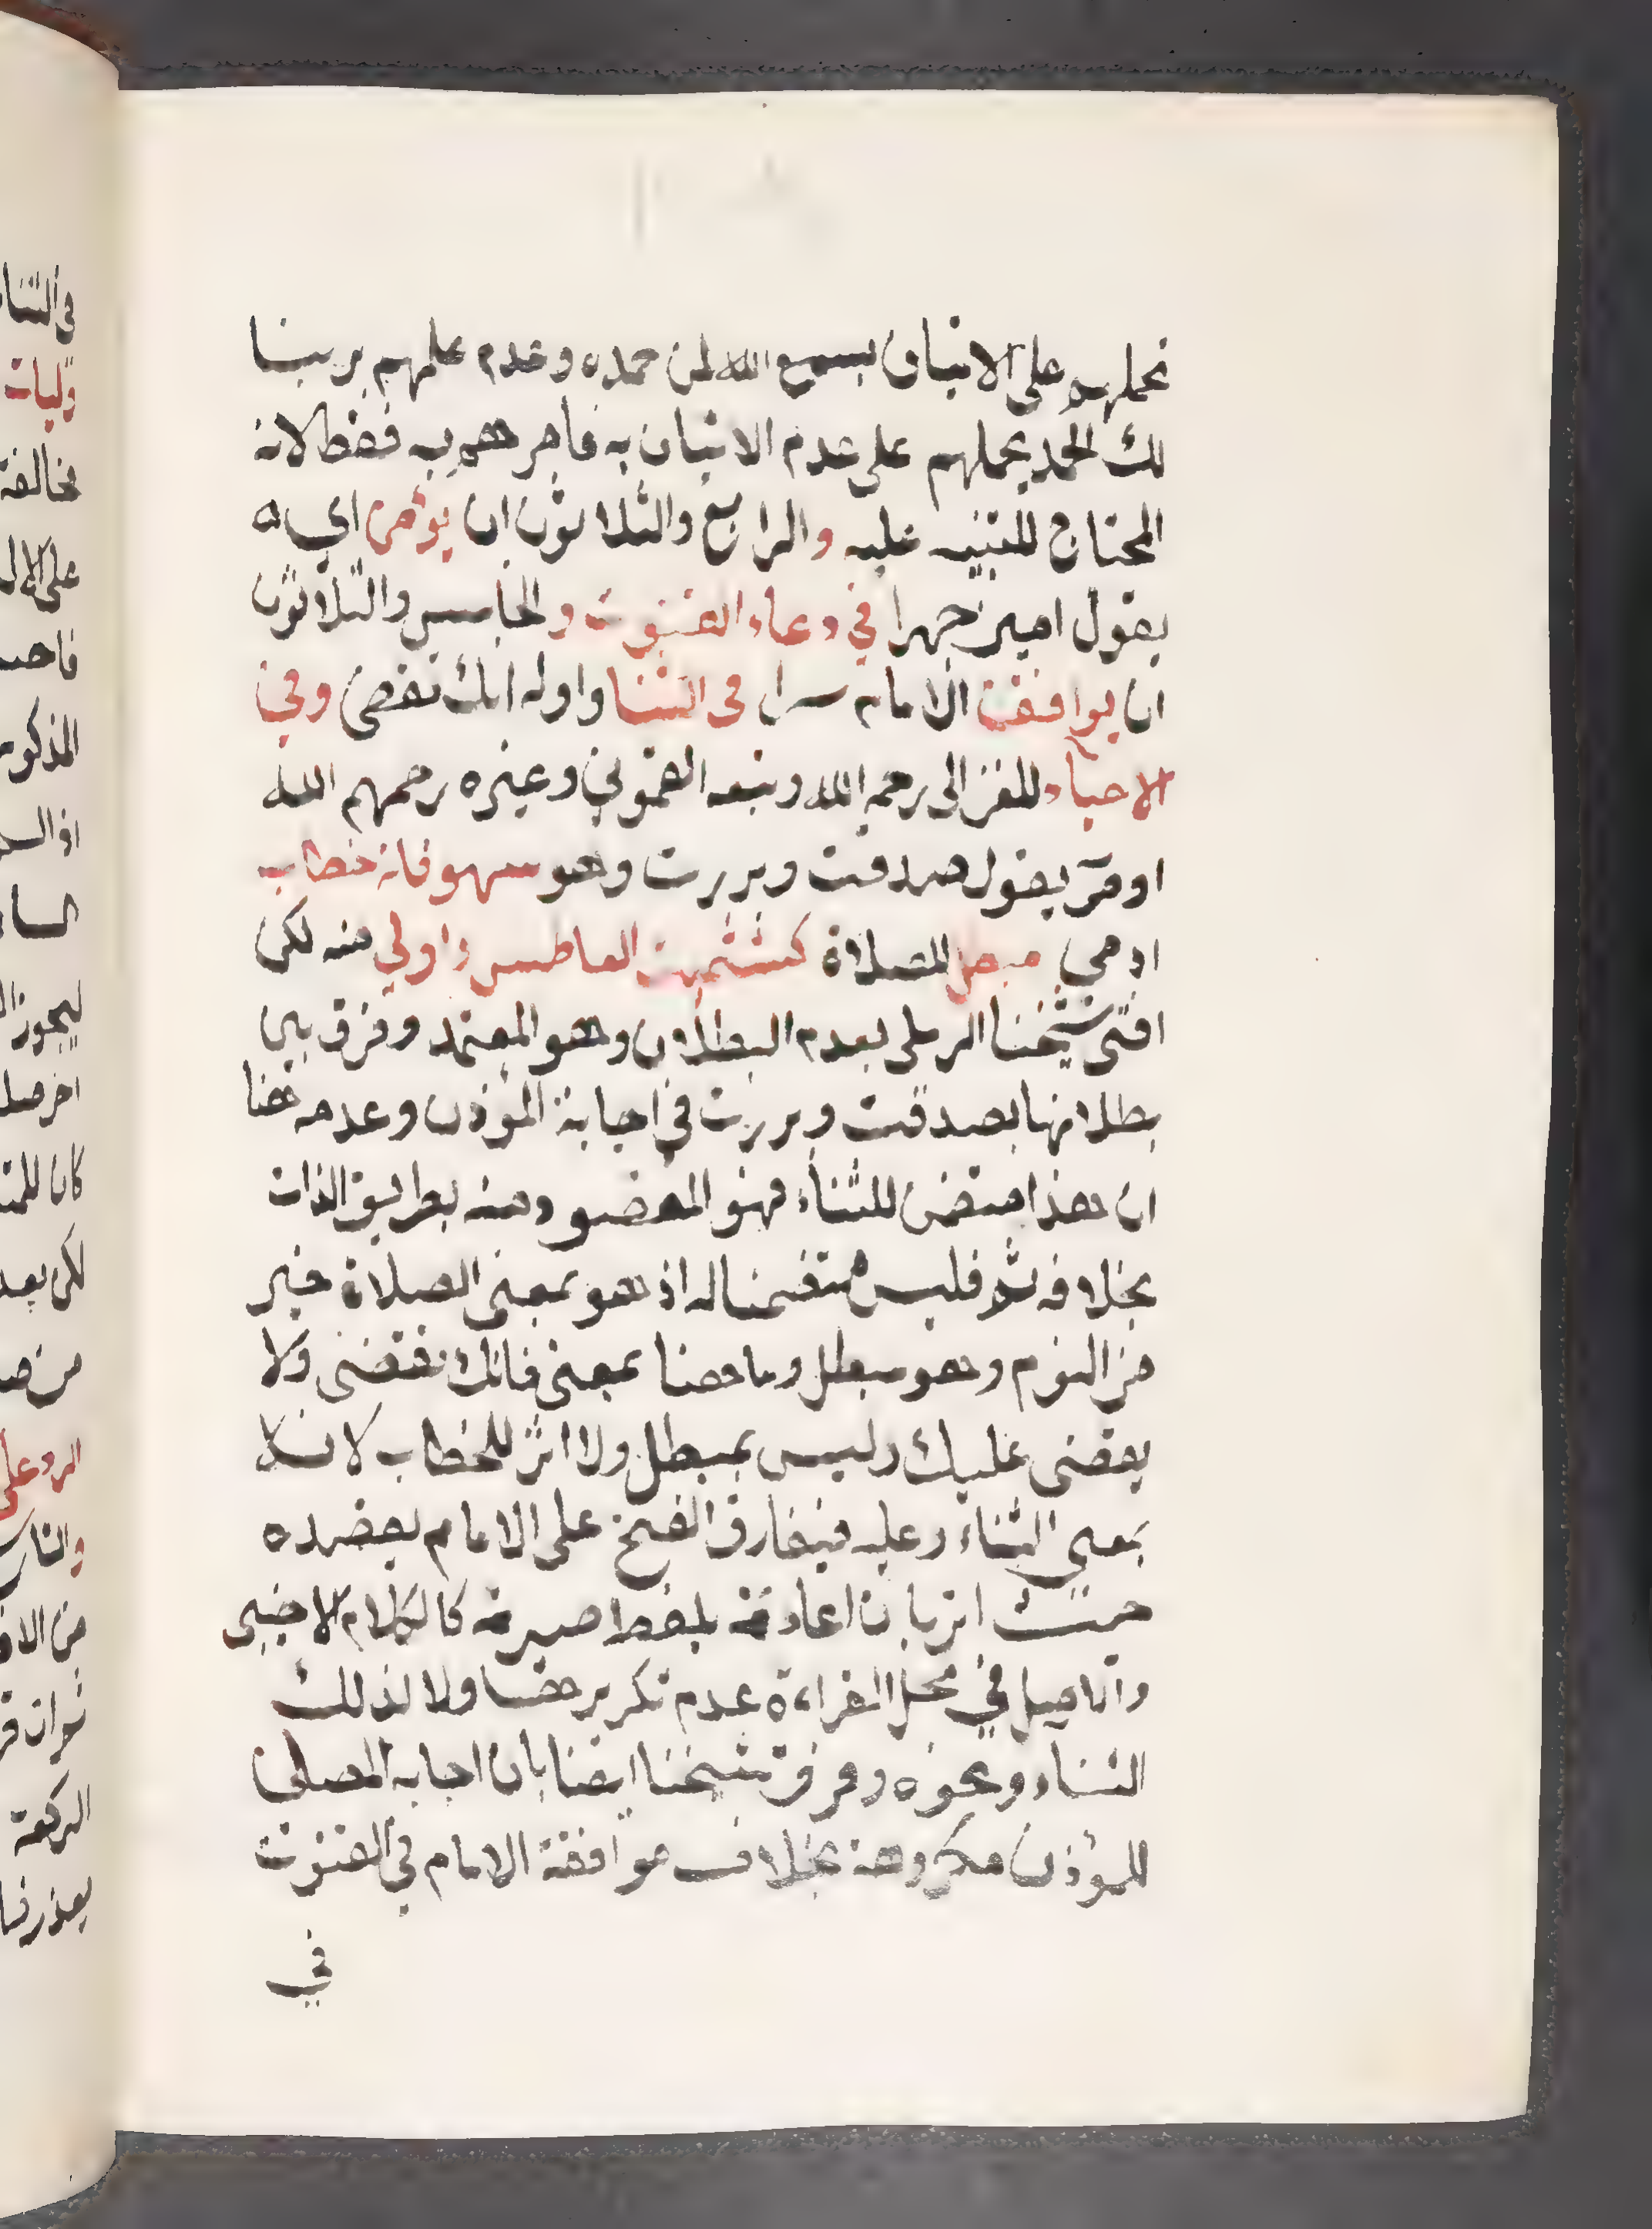 تحملهم على الاتيان بسمع الله لمن حمده وعدم علمهم بربنا
لك الحمد يحملهم على عدم الاتيان به فامرهم به فقط لانه
المحتاج للتنبيه عليه والرابع والثلاثون ان يؤمن اي
يقول امين جهرا في دعاء القنوت والخامس والثلاثون
ان يوافقن الامام سرا فى الثنا واوله انك تقضى وفي
الاحياء للغزالى رحمه الله وتبعه القمولي وغيره رحمهم الله
او مَرّ يقول صدقت وبررت وهو سهو فانه خطاب
ادمي مبطل للصلاة كتشميت العاطس واولي منه لكن
افتى شيخنا الرملى بعدم البطلان وهو المعتمد وفرق بين
بطلانها بصدقت وبررت في اجابة المؤذن وعدمه هنا
ان هذا متضمن للثناء فهو المقصود منه بطريق الذات
بخلافه ثم فليس متضمنا له اذ هو بمعنى الصلاة خير
من النوم وهو مبطل وما هنا بمعنى فانك تقضى ولا
يقضى عليك وليس بمبطل ولا اثر للخطاب لانه
بمعنى الثناء وعليه فيفارق الفتح على الامام بقصده
حيث اثر بان اعادته بلفظه صيرته كالكلام الاجنبى
والاصل في محل القراءة عدم تكريرها ولا لذلك
الثناء ونحوه وفرق شيخنا ايضا بان اجابة المصلى
للمؤذن مكروهة بخلاف موافقة الامام في القنوت
في
فى الثنا
وليات
مخالفة
المذكور
لكن بعد
الرد على
من الا
الركعة